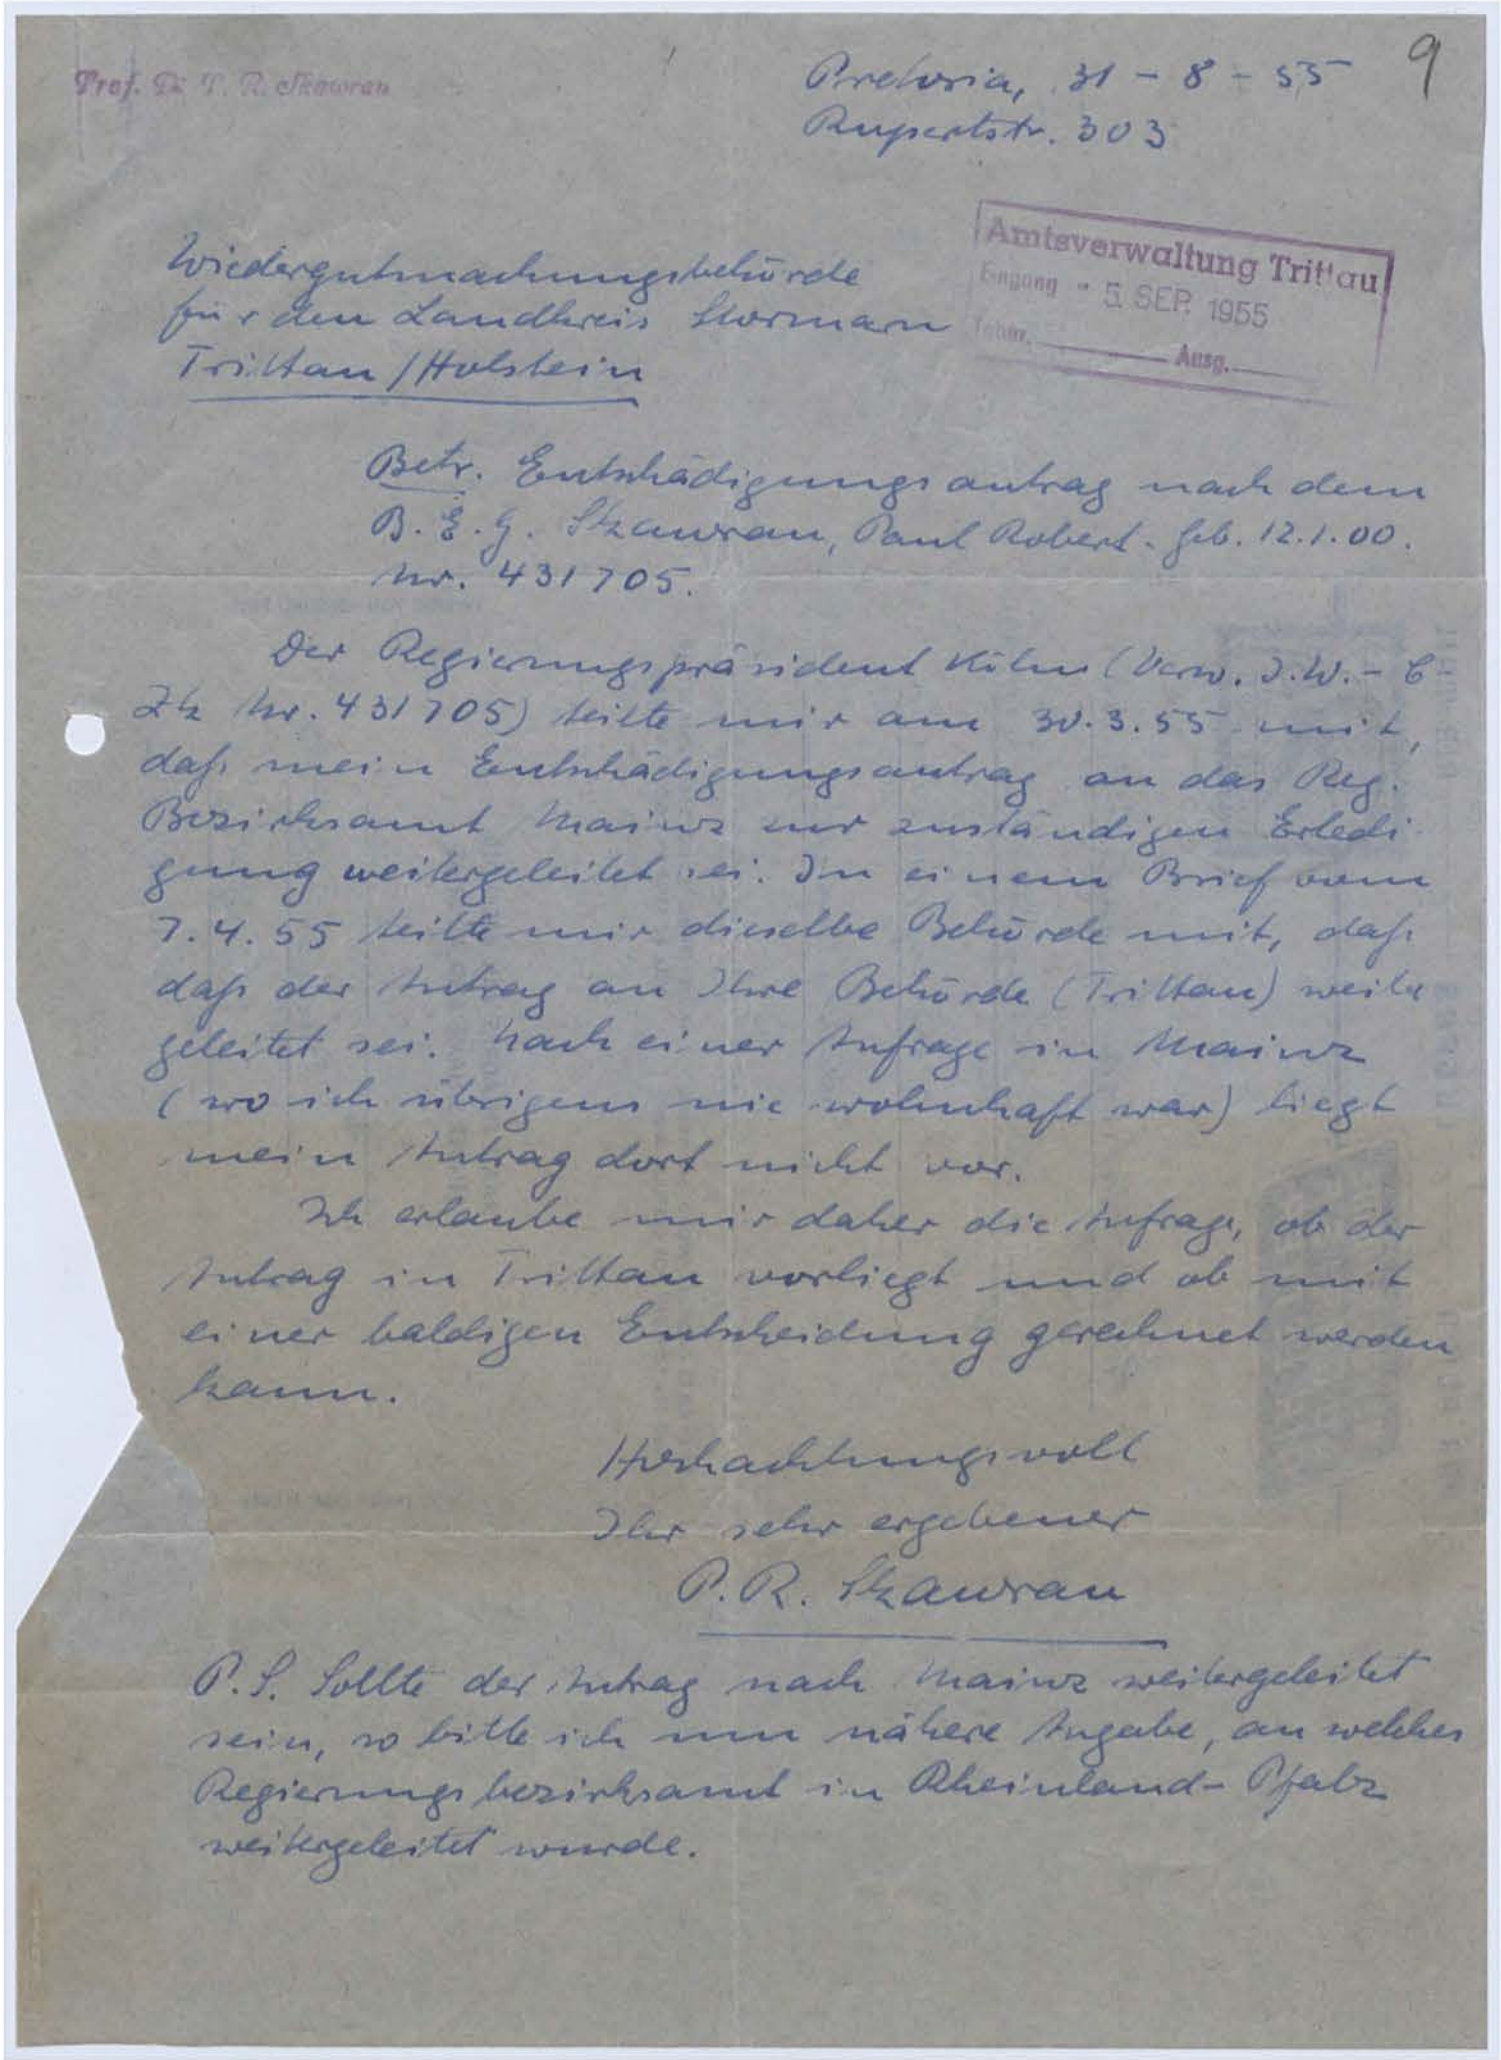 Prof. Dr. P. R. Skawran
9
Pretoria, 31 - 8 - 55
Rupertstr. 303
Amtsverwaltung Trittau
Eingang - 5. SEP. 1955
Ausg.
Wiedergutmachungsbehörde
für den Landkreis Stormarn
Trittau / Holstein
Betr. Entschädigungsantrag nach dem
B. E. G. Skawran, Paul Robert. geb. 12.1.00.
Nr. 431705.
Der Regierungspräsident Köln (Verw. J.W. - E -
Zk Nr. 431705) teilte mir am 30.3.55 mit,
daß mein Entschädigungsantrag an das Reg.
Bezirksamt Mainz zur zuständigen Erledi
gung weitergeleitet sei. In einem Brief vom
7.4.55 teilte mir dieselbe Behörde mit, daß
daß der Antrag an Ihre Behörde (Trittau) weiter
geleitet sei. Nach einer Anfrage in Mainz
(wo ich übrigens nie wohnhaft war) liegt
mein Antrag dort nicht vor.
Ich erlaube mir daher die Anfrage, ob der
Antrag in Trittau vorliegt und ob mit
einer baldigen Entscheidung gerechnet werden
kann.
Hochachtungsvoll
Ihr sehr ergebener
P. R. Skawran
P.S. Sollte der Antrag nach Mainz weitergeleitet
sein, so bitte ich um nähere Angabe, an welches
Regierungsbezirksamt in Rheinland-Pfalz
weitergeleitet wurde.